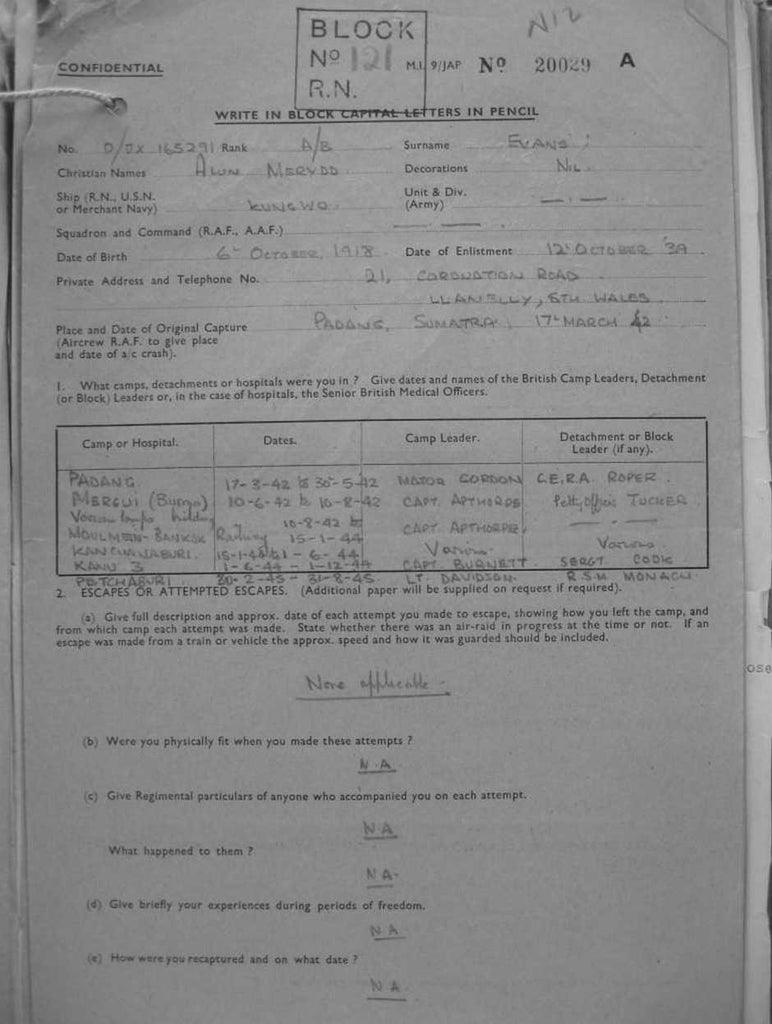 N12
BLOCK
Nº 121
R.N.
CONFIDENTIAL
M.I. 9/JAP Nº 20029 A
WRITE IN BLOCK CAPITAL LETTERS IN PENCIL
No. D/JX 165291 Rank A/B Surname EVANS
Christian Names ALUN Decorations NIL
Ship (R.N., U.S.N. or Merchant Navy) KUNGWO Unit & Div. (Army) — . — . —
Squadron and Command (R.A.F., A.A.F.)
Date of Birth 6th OCTOBER, 1918 Date of Enlistment 12th OCTOBER 39
Private Address and Telephone No. 21, CORONATION ROAD
LLANELLY, STH WALES
Place and Date of Original Capture PADANG, SUMATRA, 17th MARCH 42
(Aircrew R.A.F. to give place
and date of a/c crash).
1. What camps, detachments or hospitals were you in ? Give dates and names of the British Camp Leaders, Detachment
(or Block) Leaders or, in the case of hospitals, the Senior British Medical Officers.
Camp or Hospital. Dates. Camp Leader. Detachment or Block Leader (if any).
PADANG 17-3-42 to 30-5-42 MAJOR GORDON C.E.R.A. ROPER.
MERGUI (Burma) 10-6-42 to 10-8-42 CAPT. APTHORPE Petty Officer TUCKER.
Various camps building
MOULMEN-BANKOK Railway 10-8-42 to 15-1-44 CAPT. APTHORPE — " —
KANCHANABURI. 15-1-44 to 1-6-44 Various Various
KANU 3 1-6-44 - 1-12-44 CAPT BURNETT. SERGT COOK
PETCHABURI 30-2-45 - 31-8-45 LT. DAVIDSON. R.S.M.
2. ESCAPES OR ATTEMPTED ESCAPES. (Additional paper will be supplied on request if required).
(a) Give full description and approx. date of each attempt you made to escape, showing how you left the camp, and
from which camp each attempt was made. State whether there was an air-raid in progress at the time or not. If an
escape was made from a train or vehicle the approx. speed and how it was guarded should be included.
None applicable.
(b) Were you physically fit when you made these attempts ?
N.A.
(c) Give Regimental particulars of anyone who accompanied you on each attempt.
N A
What happened to them ?
N A.
(d) Give briefly your experiences during periods of freedom.
N A
(e) How were you recaptured and on what date ?
N A.
ose